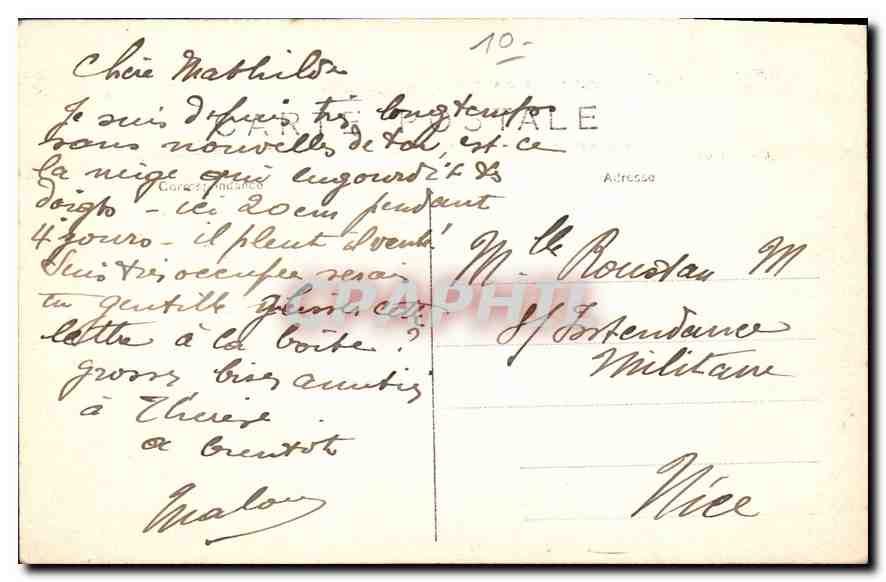 10-
Chère Mathilde
Je suis depuis très longtemps
CARTE POSTALE
sans nouvelles de toi, est-ce
la neige qui engourdit tes
Correspondance
Adresse
doigts - ici 20 cm pendant
4 jours - il pleut il vente!
Suis très occupée serais
tu gentille glisser cette
lettre à la boîte?
grosses bises amitiés
à Thérèse
à bientôt
Malou
CPAPHIL
Mlle Roustan M
S/ Intendance
Militaire
Nice